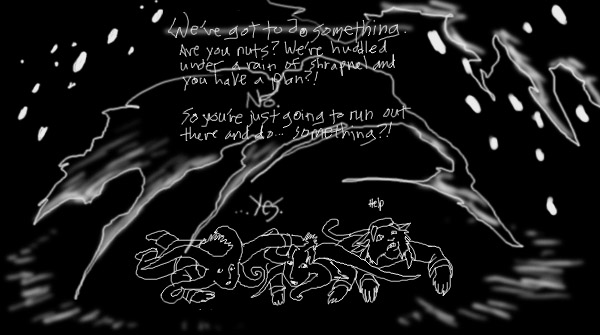 We've got to do something.
Are you nuts? We're huddled
under a rain of shrapnel and
you have a plan?!
No.
So you're just going to run out
there and do... something?!
...Yes.
Help